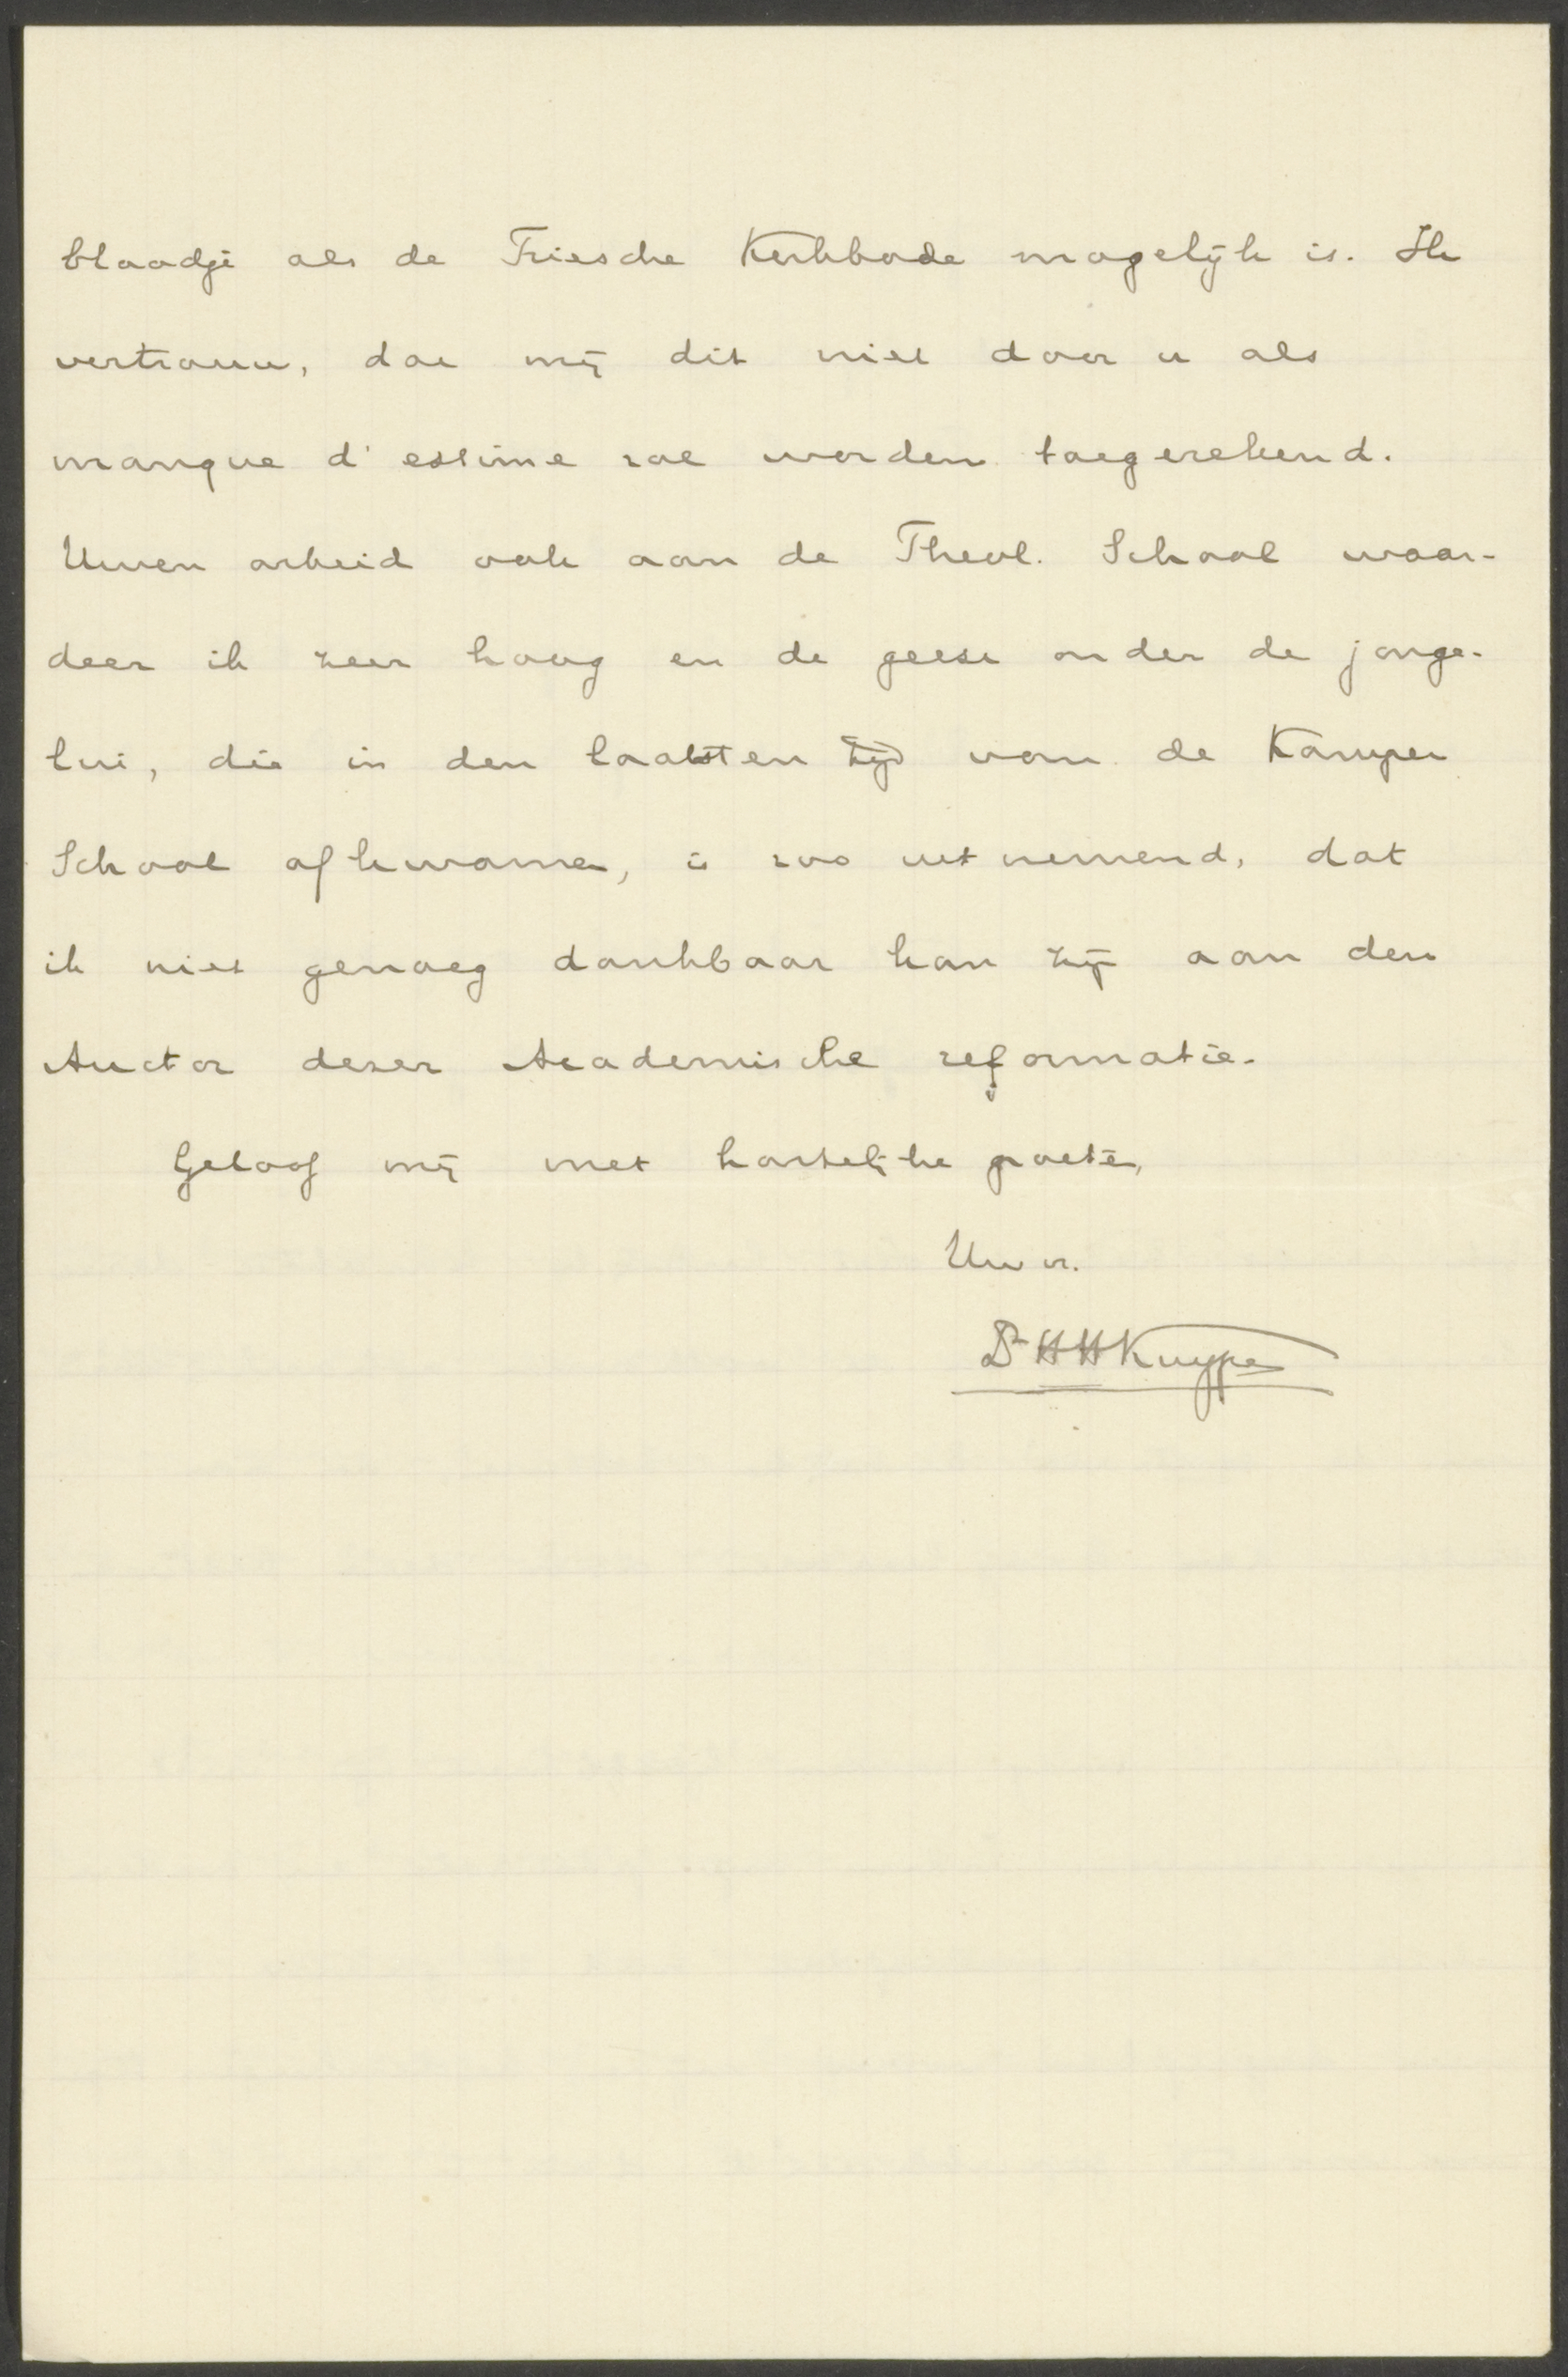 blaadje als de Friesche Kerkbode mogelijk is. Ik
vertrouw, dat mij dit niet door u als
manque d'estime zal worden toegerekend.
Uwen arbeid ook aan de Theol. School waar-
deer ik zeer hoog en de geest onder de jonge-
lui, die in den laatsten tijd van de Kamper
School afkwamen, is zoo uitnemend, dat
ik niet genoeg dankbaar kan zijn aan den
Auctor dezer Academische reformatie.
Geloof mij met hartelijke groeten,
Uw v.
Dr HHKuyper